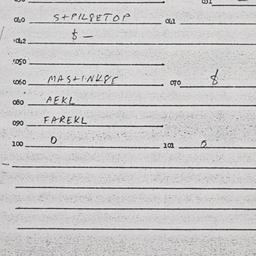 040 S+PILSETOP 041
042 $ —
050
060 MASTINKSE 070 $
080 AEKL
090 FAREKL
100 0 101 0